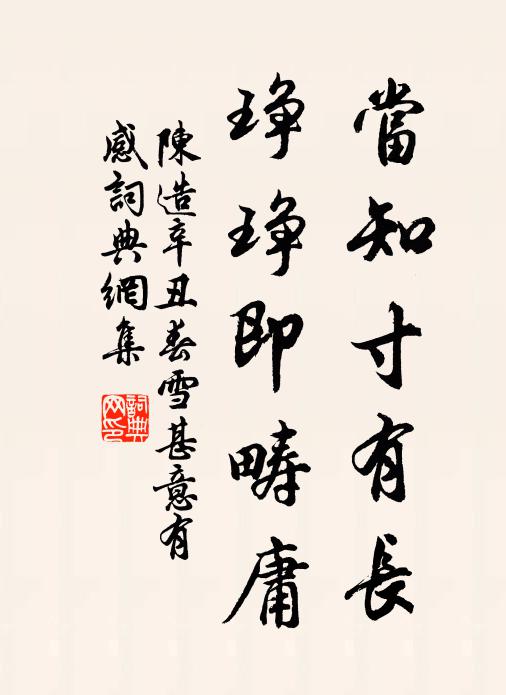 當知寸有長
琤琤即疇庸
陳造辛丑春雪甚意有
感詞典網集
詞典網印